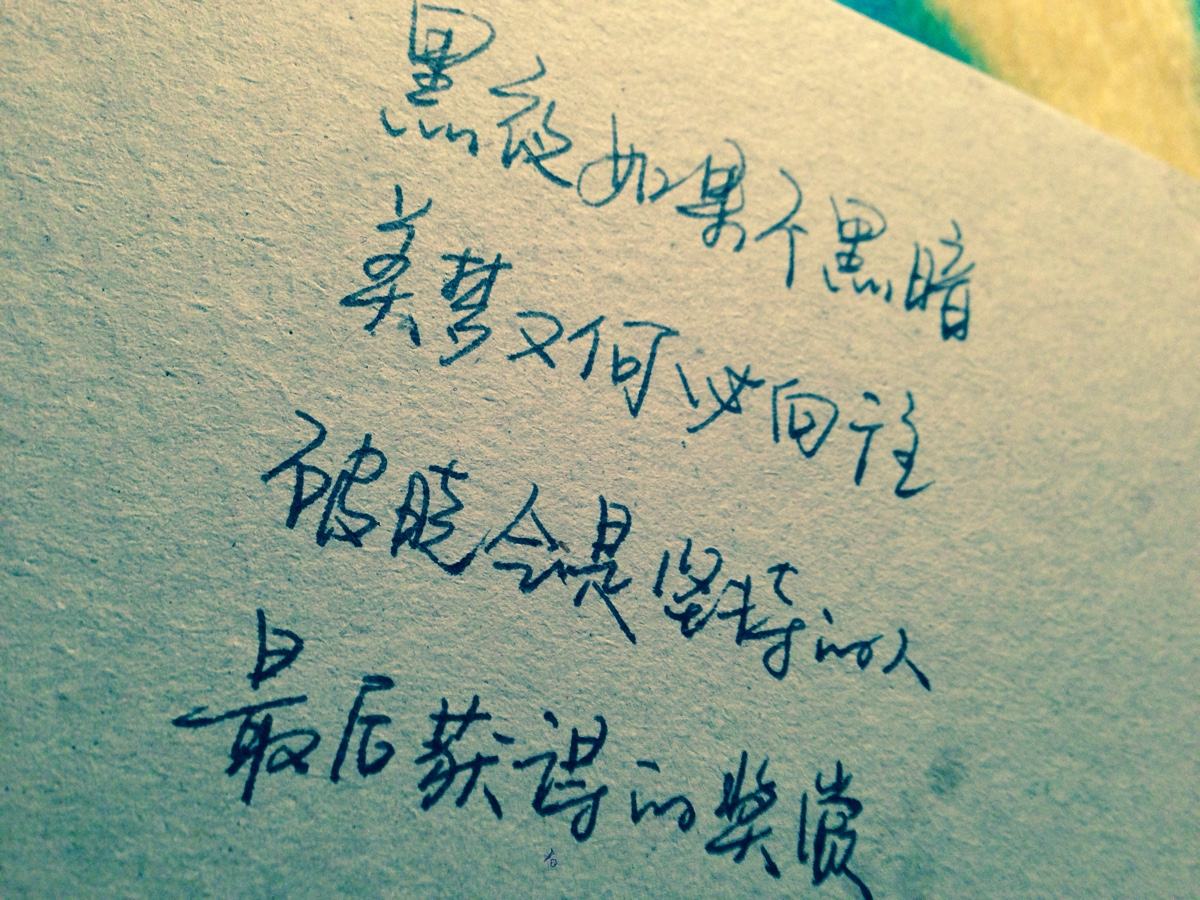 黑夜如果不黑暗
美梦又何必向往
破晓会是坚持的人
最后获得的奖赏